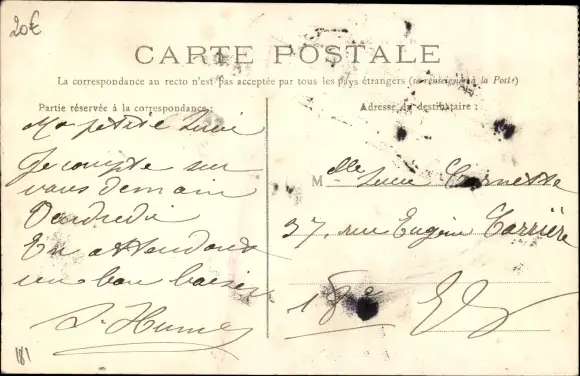 20€
CARTE POSTALE
La correspondance au recto n'est pas acceptée par tous les pays étrangers (se renseigner à la Poste)
Partie réservée à la correspondance :
Ma petite Lucie
Je compte sur
vous demain
Vendredi
En attendant
un bon baiser
181
Adresse du destinataire :
Mlle Lucie
37, rue Eugène Carrière